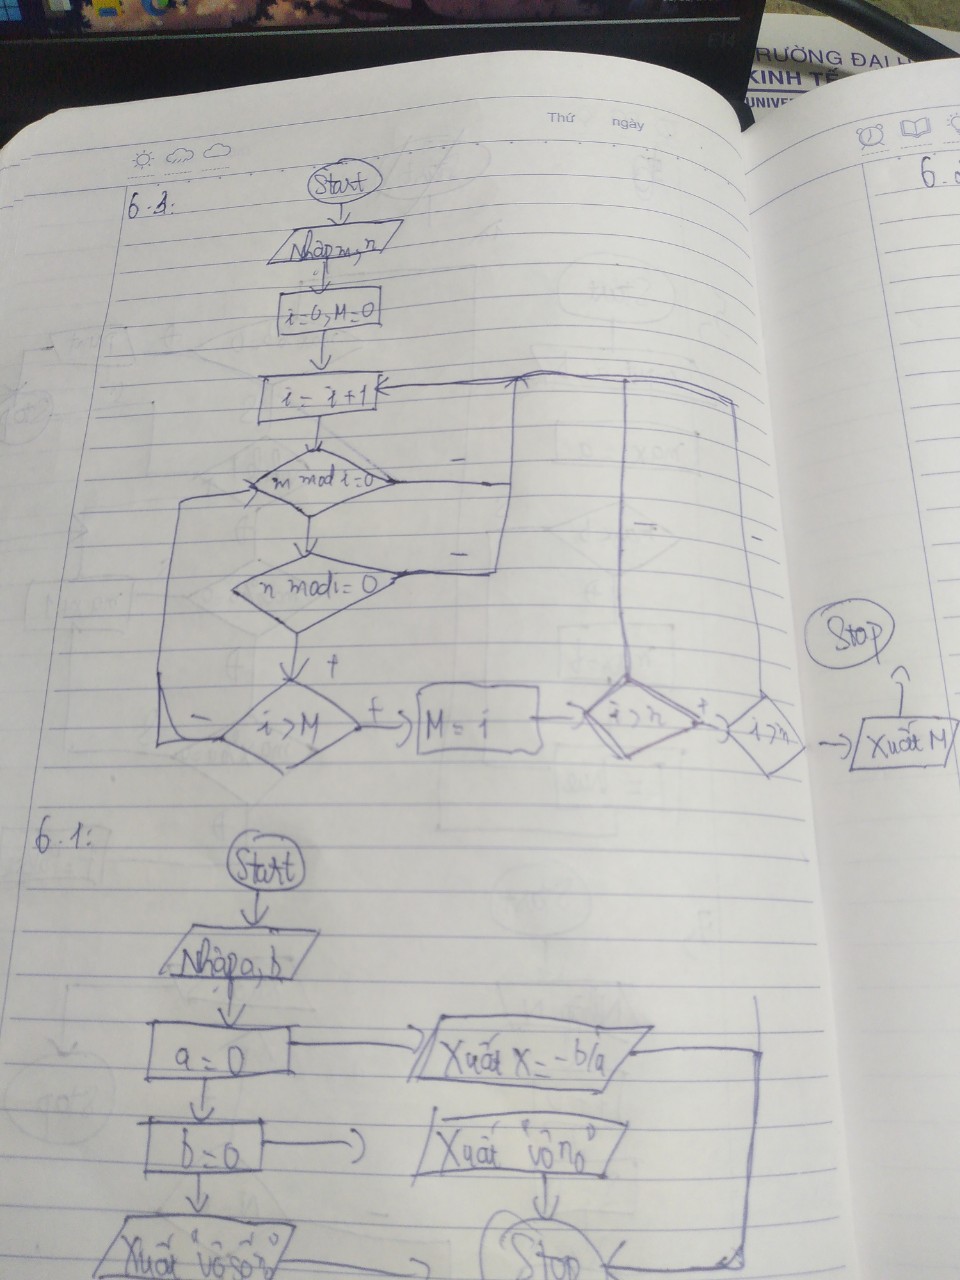 RƯỜNG ĐẠI H
KINH TẾ
UNIVE
Thứ ngày
6.3:
Start
Nhập m, n
i=0, M=0
i = i+1
m mod i=0
−
n mod i=0
−
+
i > M
−
+
M = i
i > n
−
+
i > n
−
Xuất M
Stop
6.1:
Start
Nhập a, b
a = 0
Xuất x = -b/a
b = 0
Xuất "vô no"
Xuất "vô số no"
Stop